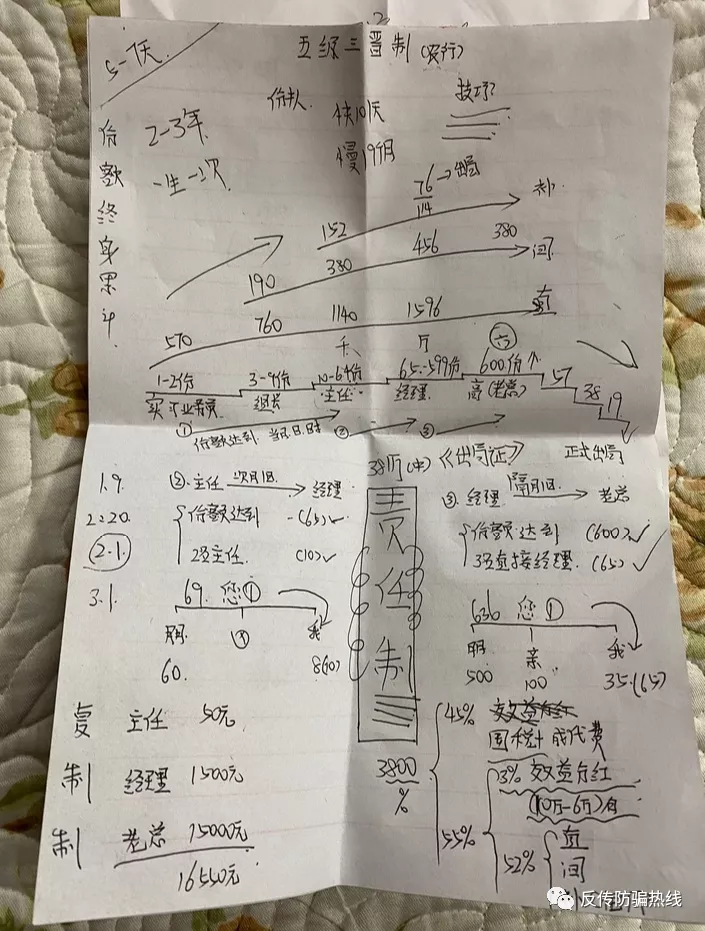 5-1天
五级三晋制(农行)
份额终身累计
2-3年
一生一次
快10天
慢19个月
技巧?
76→出局
114
补
152
380
456
380
间
190
570
760
1140
1596
直
千
万
六
1-2份
3-9份
10-64份
65-599份
600份↑
57
38
19
组长
主任
经理
高(老总)
① 份额达到
②
③
正式出局
38万(中)
《出局证》
1.9.
2.20.
2.1.
3.1.
②.主任 次月1日 经理
份额达到 (65)✓
2名主任 (10)✓
69. 您①
朋
③
我
60.
8(10)
责任制
③.经理 隔月1日 老总
份额达到 (600)✓
3名直接经理 (65)✓
636 您①
朋
亲
我
500
100
35.(65)
复制制
主任 50元
经理 1500元
老总 15000元
16550元
3800
%
45%
国税+成代费
55%
3% 效益分红
(10万-6万)
52%
直
间
反传防骗热线